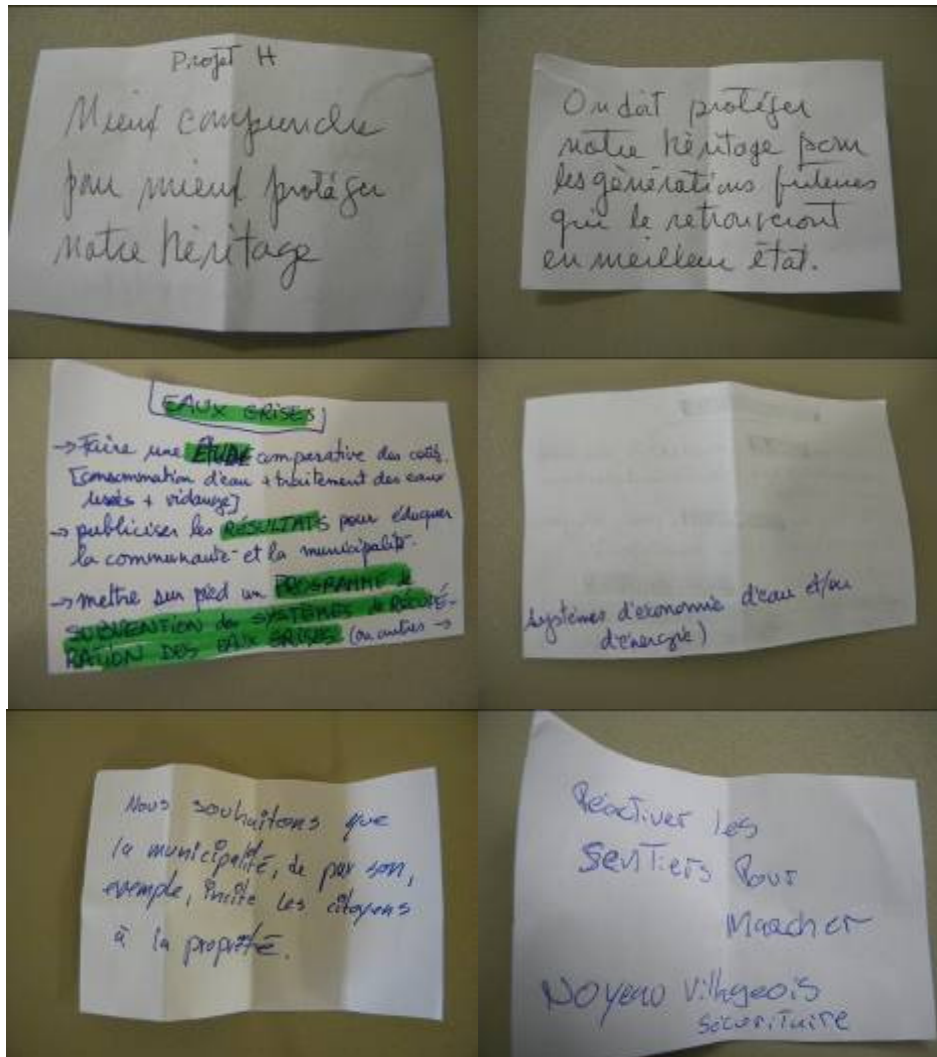 Projet H
Mieux comprendre
pour mieux protéger
notre héritage
On doit protéger
notre héritage pour
les générations futures
qui le retrouveront
en meilleur état.
EAUX GRISES
→ Faire une ÉTUDE comparative des coûts.
[consommation d'eau + traitement des eaux
usées + vidange]
→ publiciser les RÉSULTATS pour éduquer
la communauté et la municipalité.
→ mettre sur pied un PROGRAMME de
SUBVENTION des SYSTÈMES de RÉCUPÉ-
RATION DES EAUX GRISES (ou autres →
systèmes d'économie d'eau et/ou
d'énergie)
Nous souhaitons que
la municipalité, de par son,
exemple, incite les citoyens
à la propreté.
Réactiver les
Sentiers Pour
Marcher
Noyeau Villageois
Sécuritaire